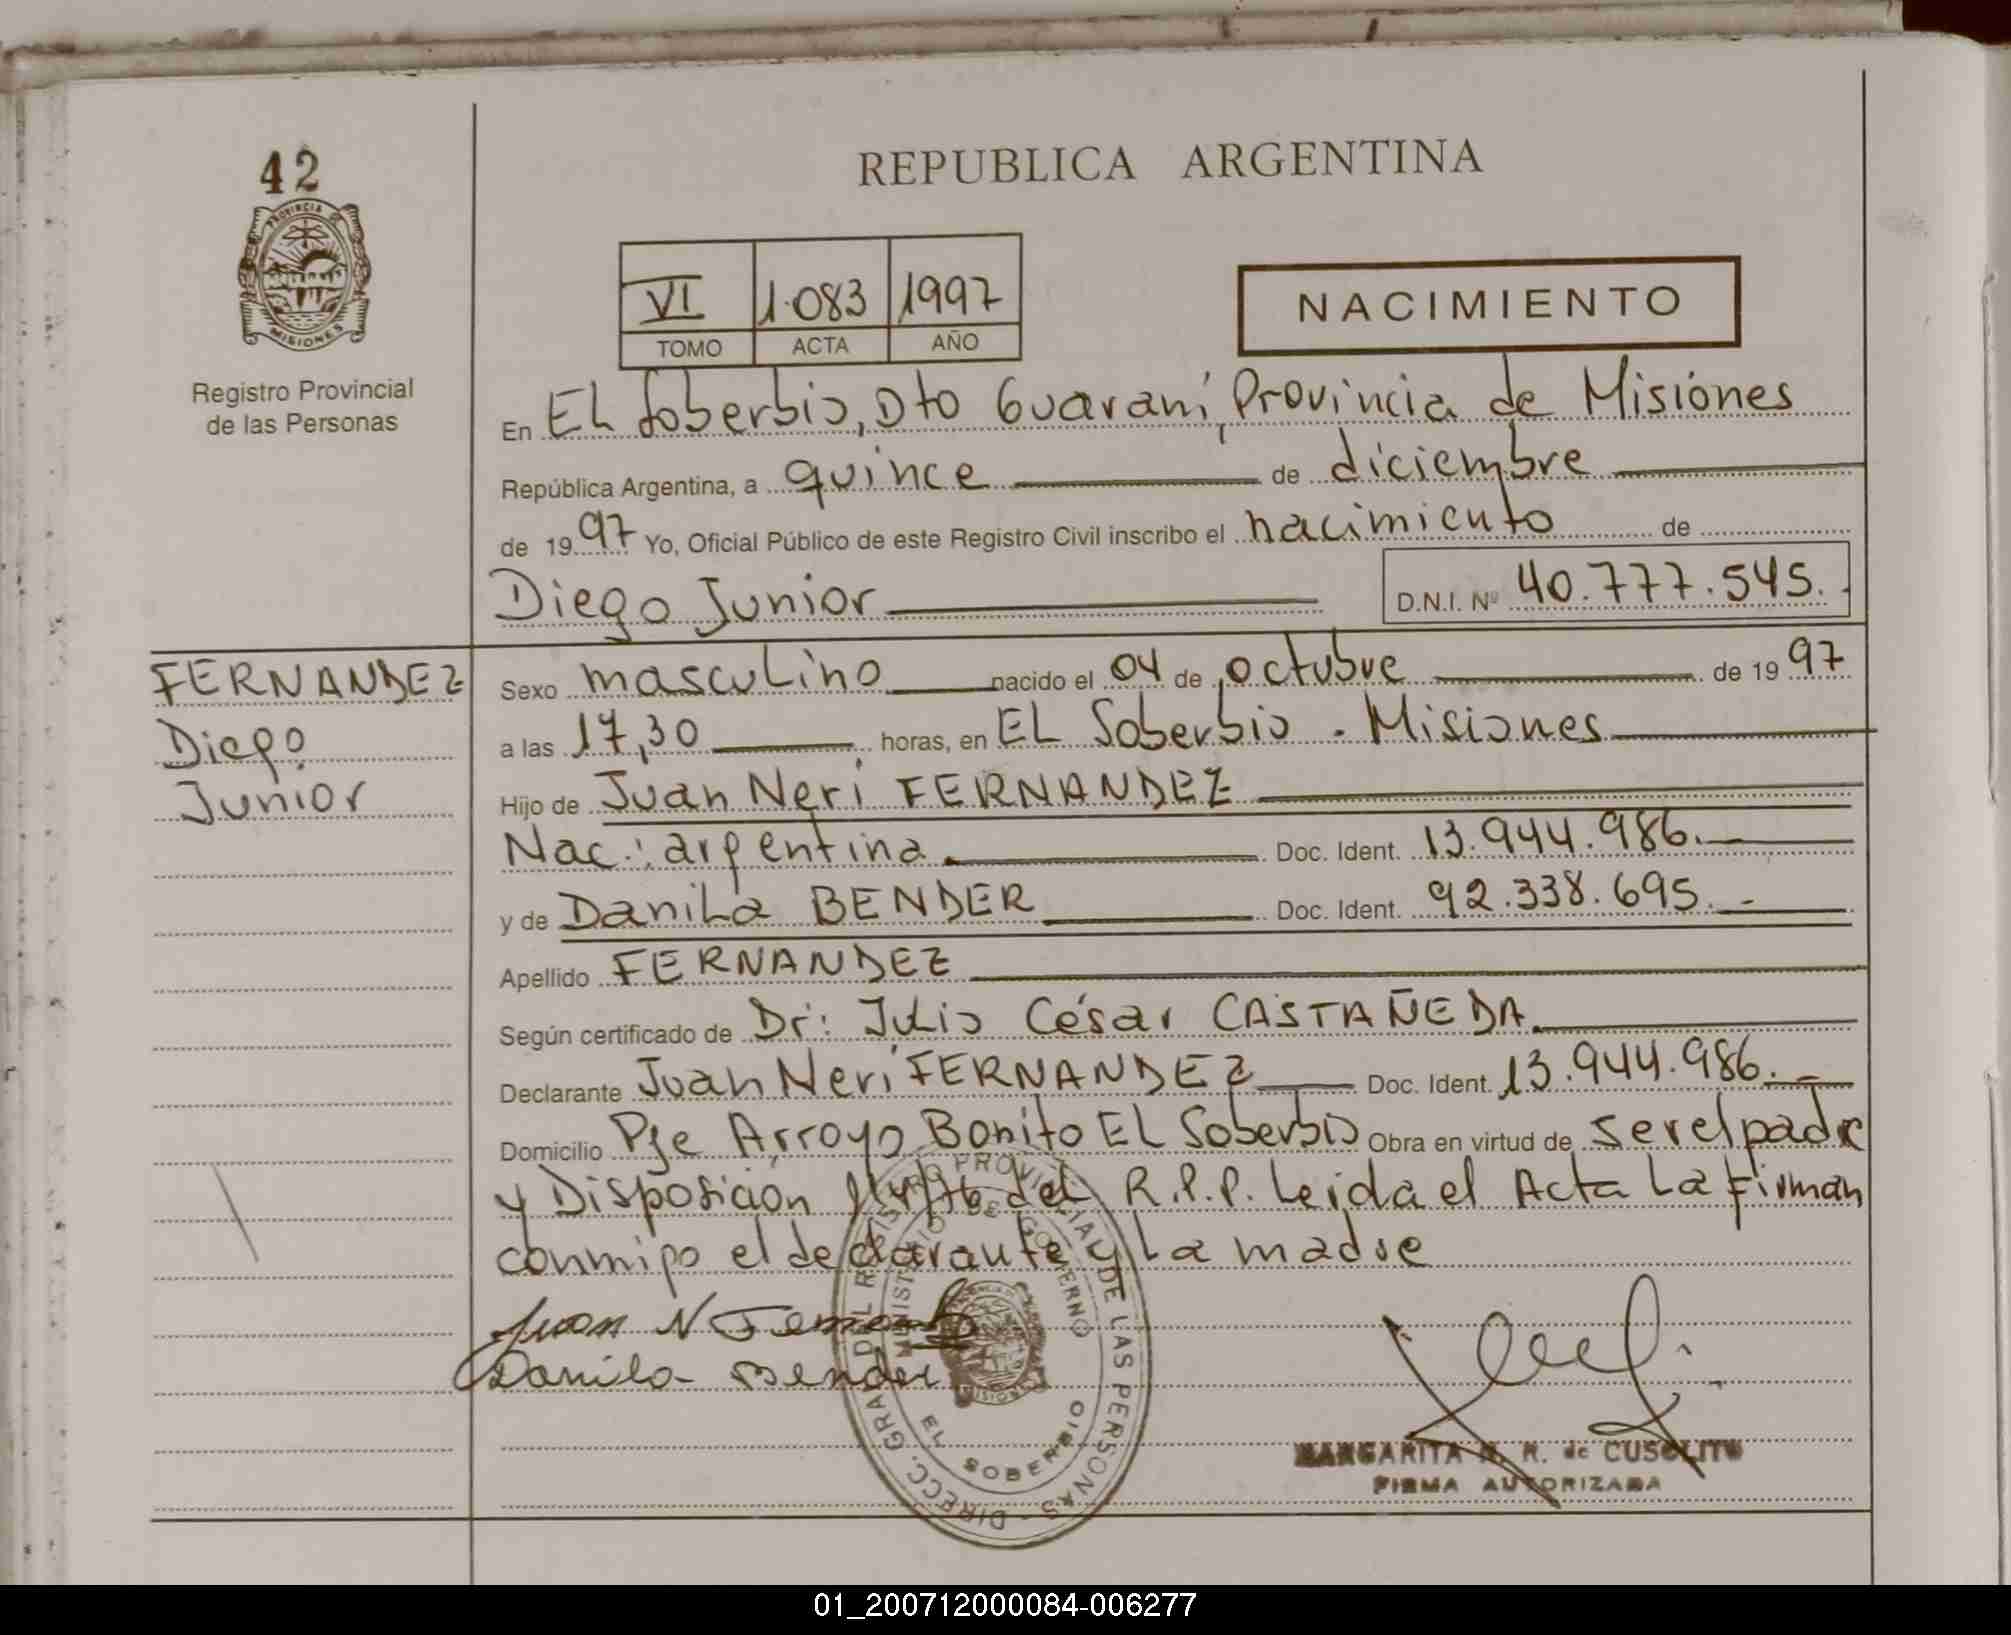 42
PROVINCIA DE
MISIONES
Registro Provincial
de las Personas
REPUBLICA ARGENTINA
VI 1.083 1997
TOMO ACTA AÑO
NACIMIENTO
En EL Soberbio, Dto Guaraní, Provincia de Misiones
República Argentina, a quince de diciembre
de 1997 Yo, Oficial Público de este Registro Civil inscribo el nacimiento de
Diego Junior
D.N.I. Nº 40.777.545.-
FERNANDEZ
Diego
Junior
Sexo masculino nacido el 04 de octubre de 1997
a las 17,30 horas, en EL Soberbio - Misiones
Hijo de Juan Neri FERNANDEZ
Nac.: argentina. Doc. Ident. 13.944.986.-
y de Danila BENDER Doc. Ident. 92.338.695.-
Apellido FERNANDEZ
Según certificado de Dr: Julio César CASTAÑEDA.
Declarante Juan Neri FERNANDEZ Doc. Ident. 13.944.986.-
Domicilio Pje Arroyo Bonito EL Soberbio Obra en virtud de ser el padre
y Disposición del R.P.P. Leida el Acta La Firman
conmigo el declarante y La madre
Juan N Fernandez
Danila Bender
DIRECC. GRAL DEL REGISTRO PROVINCIAL DE LAS PERSONAS
MINISTERIO DE GOBIERNO
EL SOBERBIO
MARGARITA R. de CUSOLITO
FIRMA AUTORIZADA
01_200712000084-006277